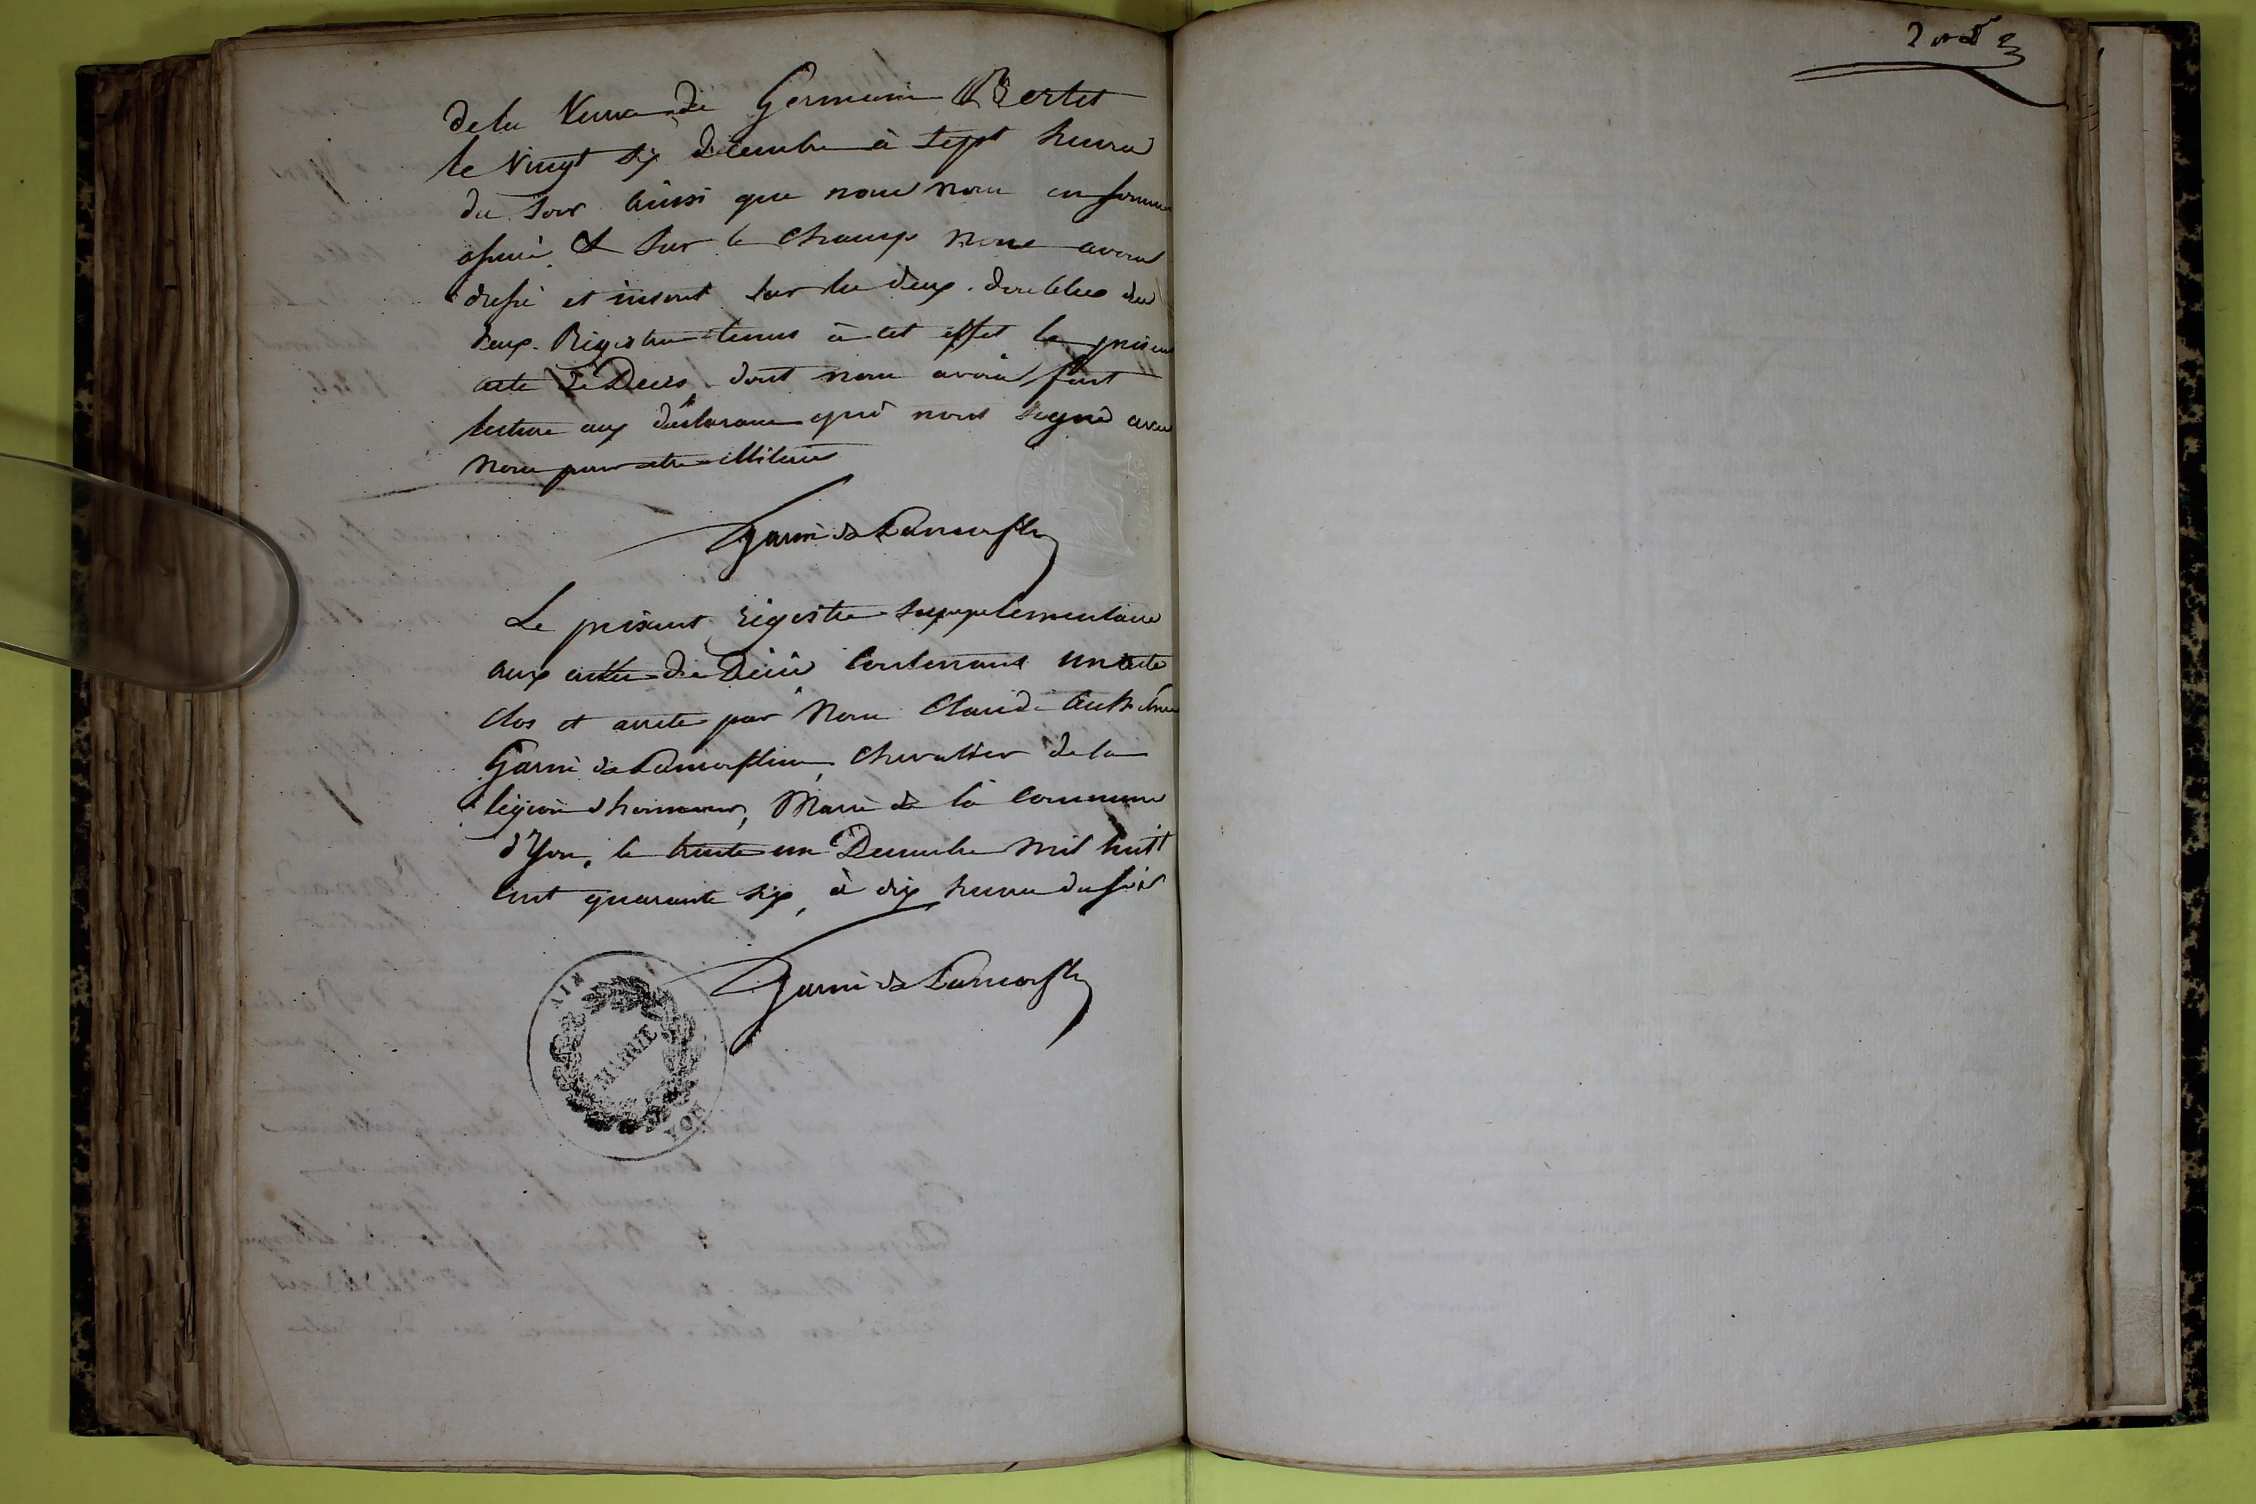 de la Veuve de Germain Bertet
le vingt six décembre à sept heures
du soir ainsi que nous nous en sommes
assuré & sur le champ nous avons
dressé et inscrit sur les deux doubles des
deux Registres tenus à cet effet le présent
acte de Décès dont nous avons fait
lecture aux déclarans qui n'ont signé avec
nous pour être illiteres
Garin de Lamorflan
Le présent régistre supplementaire
aux actes de Décès contenant un acte
clos et arrete par Nous Claude Anthelme
Garin de Lamorflan, chevalier de la
légion d'honneur, Maire de la Commune
d'Yon, le trente un Decembre mil huit
cent quarante six, à dix heures du soir
Garin de Lamorflan
AIN
MAIRIE
YON